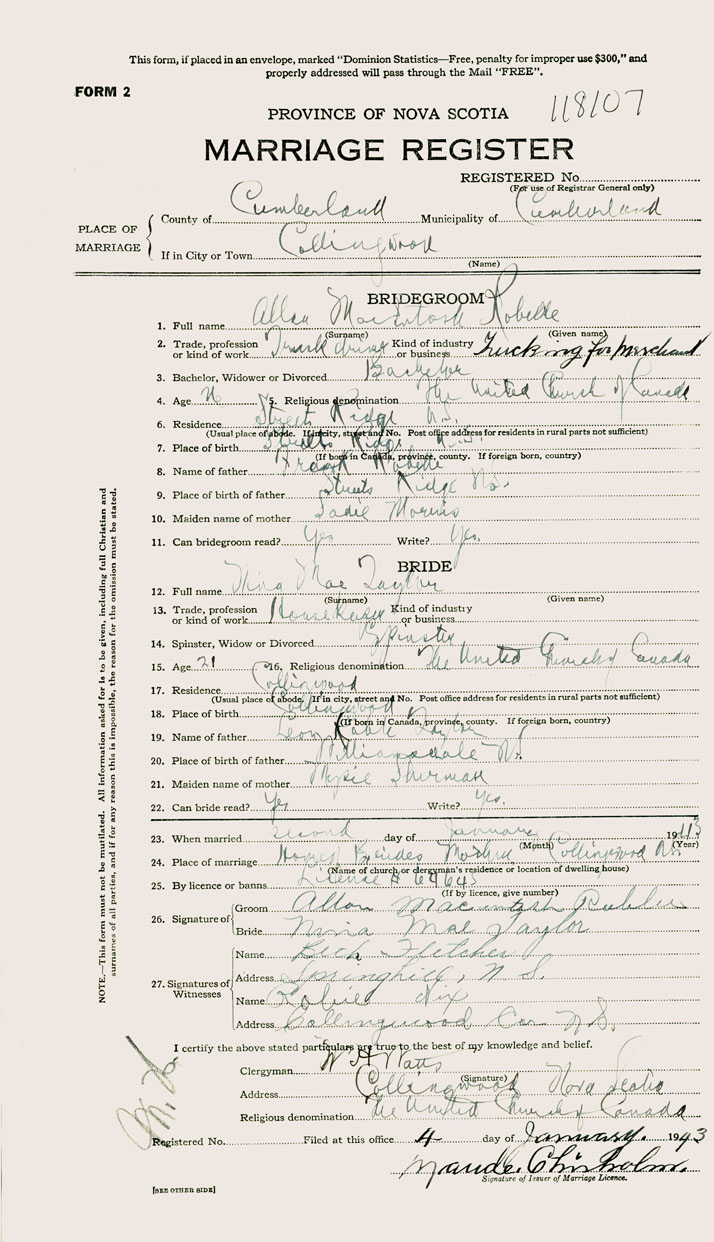 This form, if placed in an envelope, marked "Dominion Statistics—Free, penalty for improper use $300," and
properly addressed will pass through the Mail "FREE".
FORM 2
118107
PROVINCE OF NOVA SCOTIA
MARRIAGE REGISTER
REGISTERED No.
(For use of Registrar General only)
PLACE OF MARRIAGE
County of Cumberland Municipality of Cumberland
If in City or Town Collingwood
(Name)
BRIDEGROOM
1. Full name Allan Macintosh
(Surname) (Given name)
2. Trade, profession or kind of work Truck driver Kind of industry or business Trucking for Merchant
3. Bachelor, Widower or Divorced Bachelor
4. Age 5. Religious denomination The United Church of Canada
6. Residence Streets Ridge N.S.
(Usual place of abode. If in city, street and No. Post office address for residents in rural parts not sufficient)
7. Place of birth Streets Ridge N.S.
(If born in Canada, province, county. If foreign born, country)
8. Name of father Frank
9. Place of birth of father Streets Ridge N.S.
10. Maiden name of mother Sadie Morris
11. Can bridegroom read? Yes Write? Yes.
BRIDE
12. Full name Nina Mae Taylor
(Surname) (Given name)
13. Trade, profession or kind of work Housekeeper Kind of industry or business
14. Spinster, Widow or Divorced Spinster
15. Age 21 16. Religious denomination The United Church of Canada
17. Residence Collingwood
(Usual place of abode. If in city, street and No. Post office address for residents in rural parts not sufficient)
18. Place of birth Collingwood
(If born in Canada, province, county. If foreign born, country)
19. Name of father Taylor
20. Place of birth of father Williamsdale N.S.
21. Maiden name of mother Sherman
22. Can bride read? Yes Write? Yes.
23. When married second day of January 1943
(Month) (Year)
24. Place of marriage Home of Brides Mother Collingwood N.S.
(Name of church or clergyman's residence or location of dwelling house)
25. By licence or banns License #
(If by licence, give number)
26. Signature of
Groom Allan Macintosh
Bride Nina Mae Taylor
27. Signatures of Witnesses
Name Fletcher
Address Springhill, N.S.
Name
Address Collingwood Cor N.S.
I certify the above stated particulars are true to the best of my knowledge and belief.
Clergyman W A Watts
(Signature)
Address Collingwood Nova Scotia
Religious denomination The United Church of Canada
Registered No. Filed at this office 4 day of January. 1943
Maude Chisholm.
Signature of Issuer of Marriage Licence.
[SEE OTHER SIDE]
NOTE.—This form must not be mutilated. All information asked for is to be given, including full Christian and
surnames of all parties, and if for any reason this is impossible, the reason for the omission must be stated.